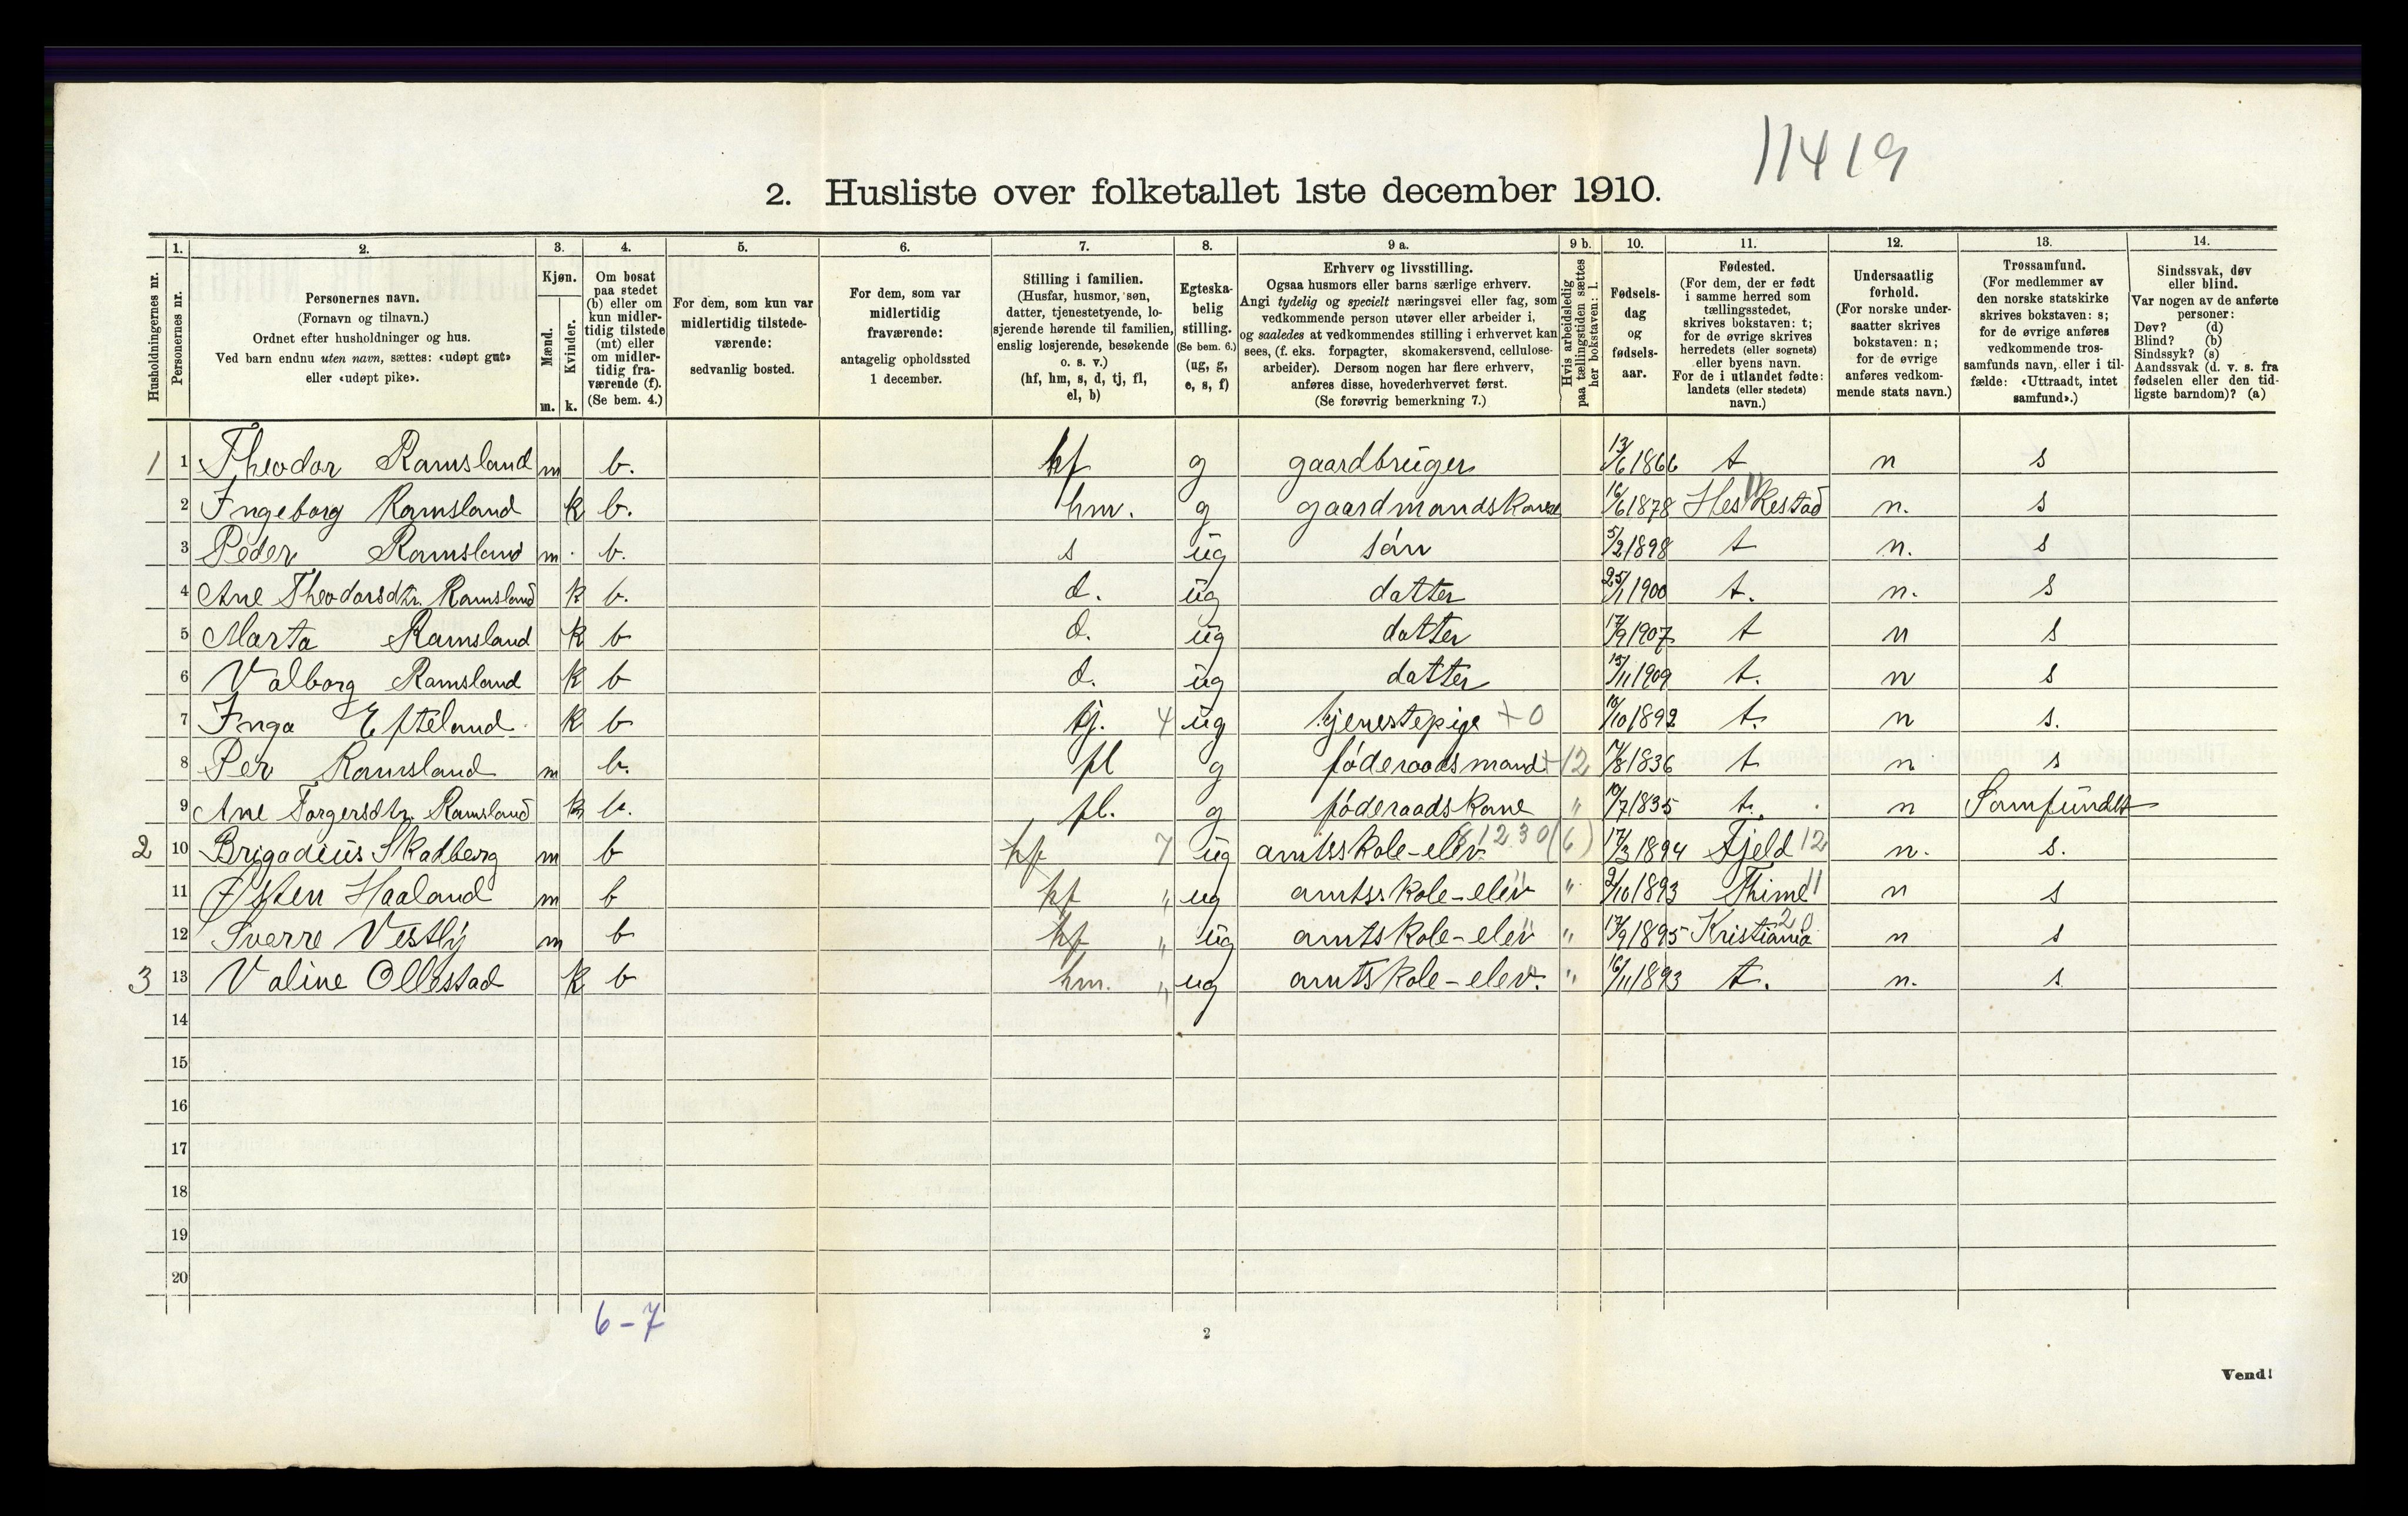 11419
2. Husliste over folketallet 1ste december 1910.
Husholdningernes nr.
1. Personernes nr.
2. Personernes navn.
(Fornavn og tilnavn.)
Ordnet efter husholdninger og hus.
Ved barn endnu uten navn, sættes: «udøpt gut»
eller «udøpt pike».
3. Kjøn.
Mænd. m.
Kvinder. k.
4. Om bosat
paa stedet
(b) eller om
kun midler-
tidig tilstede
(mt) eller
om midler-
tidig fra-
værende (f).
(Se bem. 4.)
5. For dem, som kun var
midlertidig tilstede-
værende:
sedvanlig bosted.
6. For dem, som var
midlertidig
fraværende:
antagelig opholdssted
1 december.
7. Stilling i familien.
(Husfar, husmor, søn,
datter, tjenestetyende, lo-
sjerende hørende til familien,
enslig losjerende, besøkende
o. s. v.)
(hf, hm, s, d, tj, fl,
el, b)
8. Egteska-
belig
stilling.
(Se bem. 6.)
(ug, g,
e, s, f)
9 a. Erhverv og livsstilling.
Ogsaa husmors eller barns særlige erhverv.
Angi tydelig og specielt næringsvei eller fag, som
vedkommende person utøver eller arbeider i,
og saaledes at vedkommendes stilling i erhvervet kan
sees, (f. eks. forpagter, skomakersvend, cellulose-
arbeider). Dersom nogen har flere erhverv,
anføres disse, hovederhvervet først.
(Se forøvrig bemerkning 7.)
9 b. Hvis arbeidsledig
paa tællingstiden sættes
her bokstaven: l.
10. Fødsels-
dag
og
fødsels-
aar.
11. Fødested.
(For dem, der er født
i samme herred som
tællingsstedet,
skrives bokstaven: t;
for de øvrige skrives
herredets (eller sognets)
eller byens navn.
For de i utlandet fødte:
landets (eller stedets)
navn.)
12. Undersaatlig
forhold.
(For norske under-
saatter skrives
bokstaven: n;
for de øvrige
anføres vedkom-
mende stats navn.)
13. Trossamfund.
(For medlemmer av
den norske statskirke
skrives bokstaven: s;
for de øvrige anføres
vedkommende tros-
samfunds navn, eller i til-
fælde: «Uttraadt, intet
samfund».)
14. Sindssvak, døv
eller blind.
Var nogen av de anførte
personer:
Døv? (d)
Blind? (b)
Sindssyk? (s)
Aandssvak (d. v. s. fra
fødselen eller den tid-
ligste barndom)? (a)
1 1 Theodor Ramsland m b. hf g gaardbruger 13/6 1866 t n s
2 Ingeborg Ramsland k b. hm. g gaardmandskone 16/6 1878 Heskestad 11 n. s
3 Peder Ramsland m b. s ug søn 5/2 1898 t n. s
4 Ane Theodorsdtr. Ramsland k b. d. ug datter 25/1 1900 t. n. s
5 Marta Ramsland k b d. ug datter 17/9 1907 t n s
6 Valborg Ramsland k b d. ug datter 15/11 1909 t. n s
7 Inga Efteland k b tj. 4 ug tjenestepige + 0 10/10 1892 t. n s.
8 Per Ramsland m b. fl g føderaadsmand -12 /8 1836 t n s
9 Ane Torgersdtr. Ramsland k b. fl. g føderaadskone " 10/7 1835 t. n Samfundet
2 10 Brigadius Skadberg m b hf 7 ug amtsskole-elev 1230 (6) 17/3 1894 Fjeld 12 n. s.
11 Østen Haaland m b hf " ug amtsskole-elev " 9/10 1893 Thime 11 n s
12 Sverre Vestly m b hf " ug amtskole-elev " 17/9 1895 Kristiania 20 n s
3 13 Valine Ollestad k b hm. " ug amtskole-elev. " 16/11 1893 t. n. s
14
15
16
17
18
19
20
6-7
2
Vend!